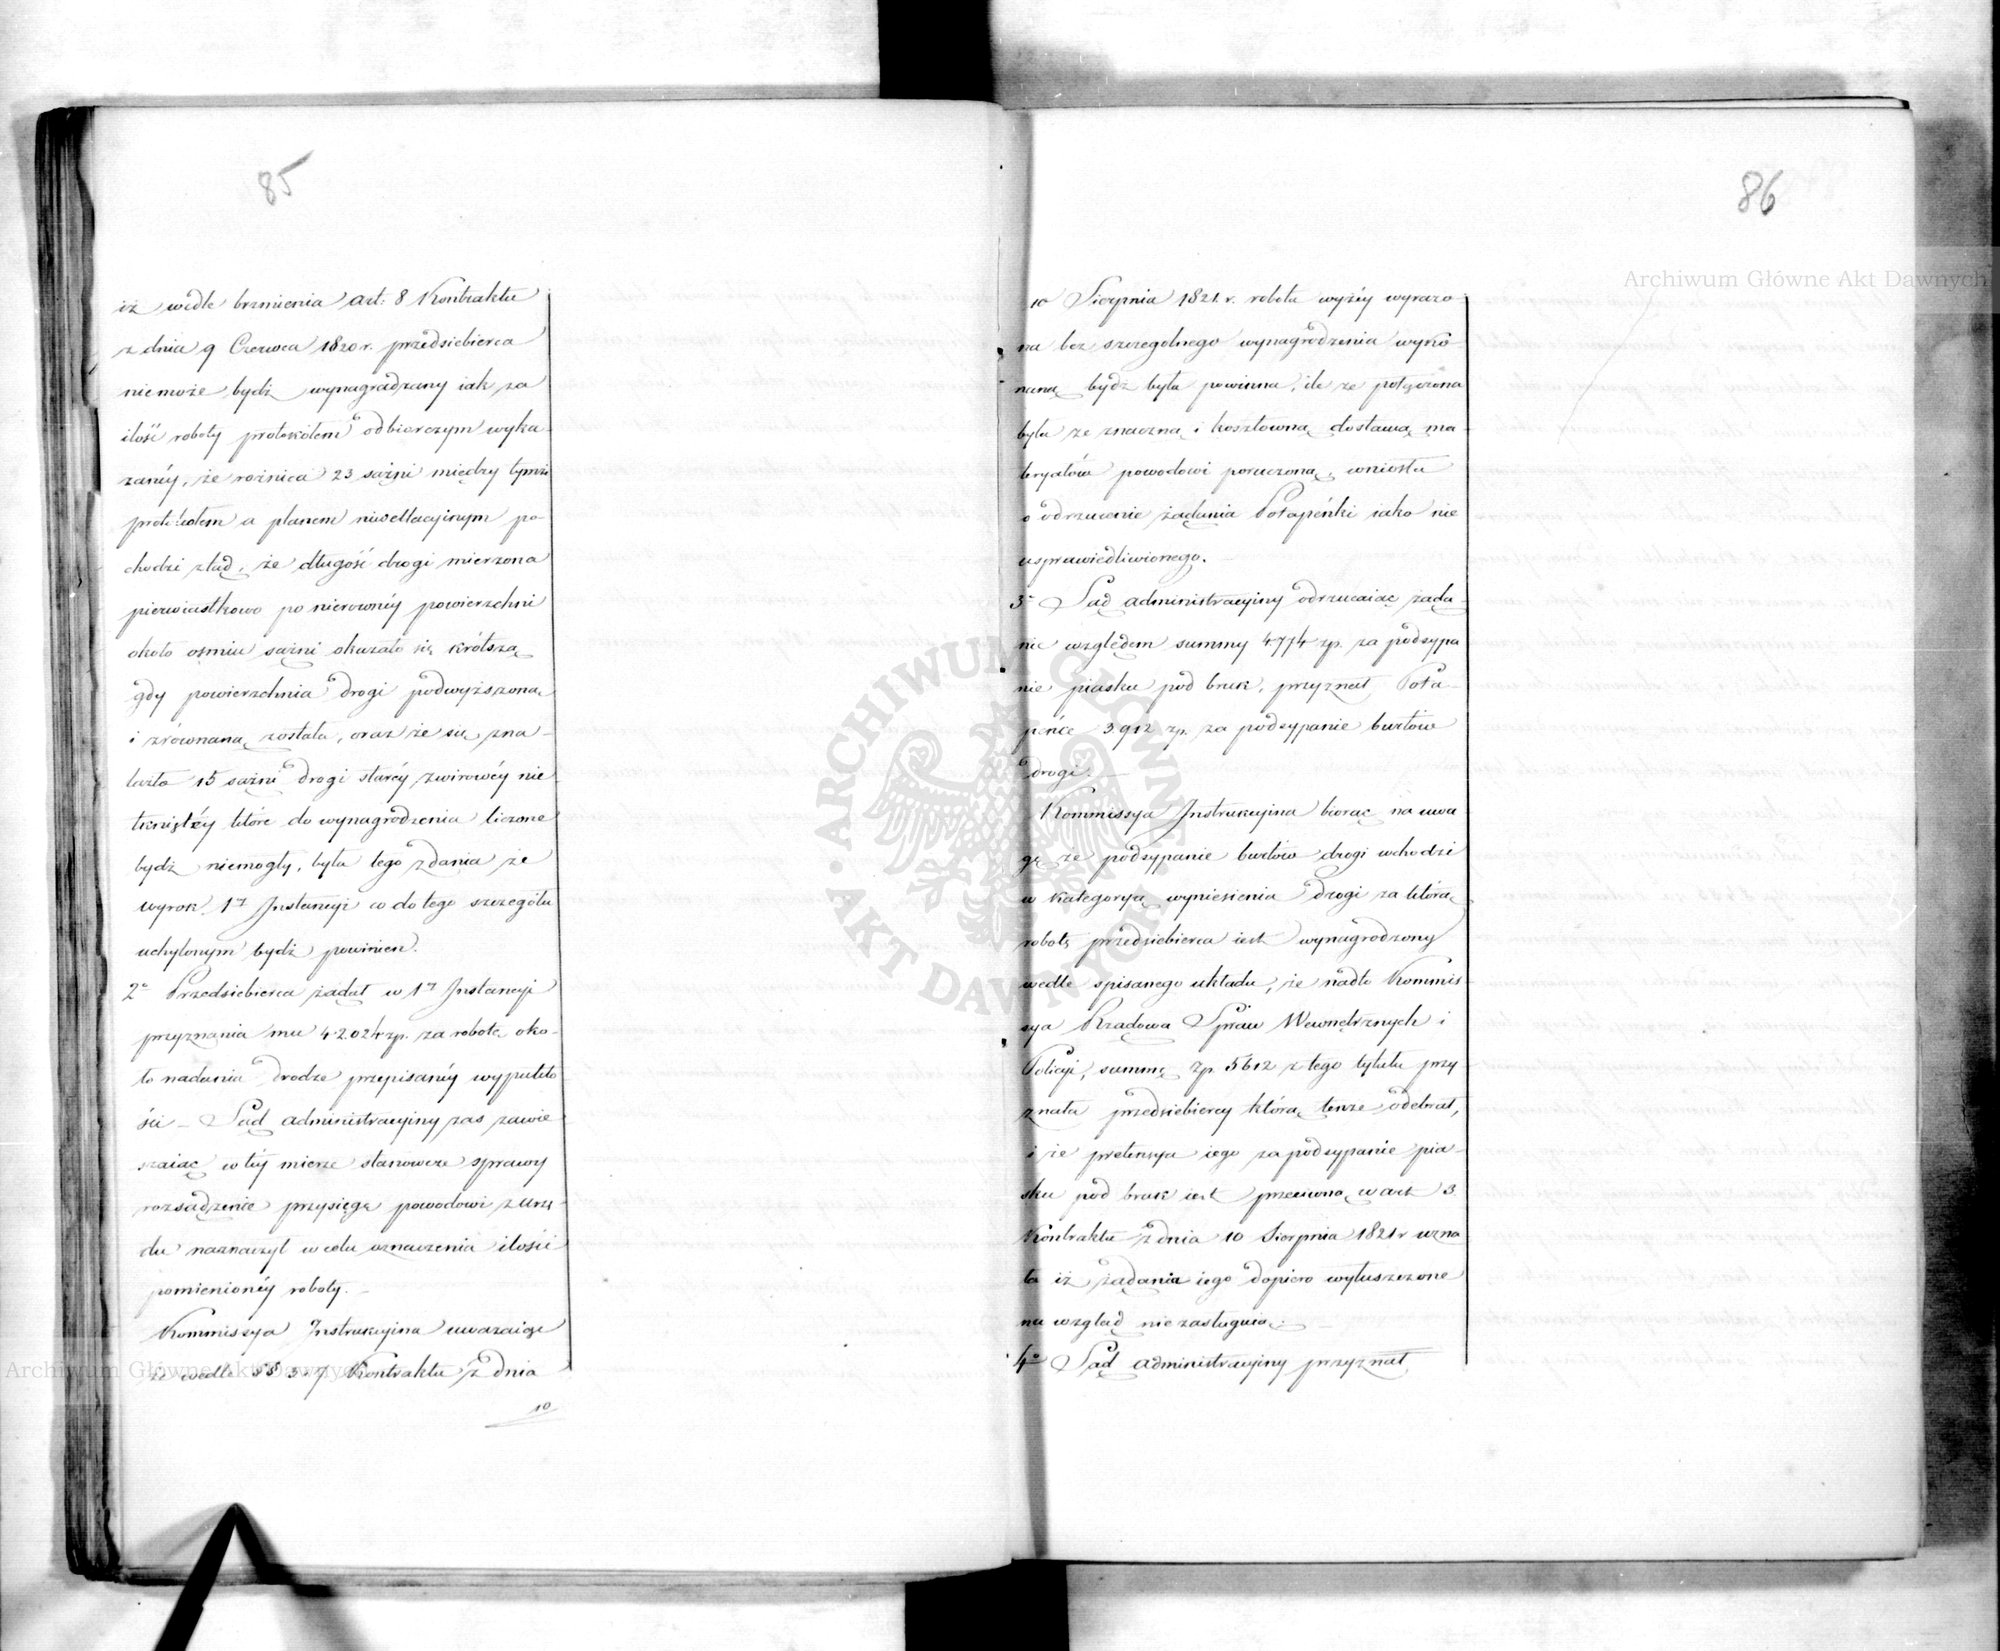 85
iż wedle brzmienia art: 8 Kontraktu
z dnia 9 Czerwca 1820 r. przedsiebierca
niemoże bydź wynagradzany iak za
ilość roboty protokółem odbiorczym wyka
zanéy, że roźnica 23 sążni między tymże
protokółem a planem niwellacyinym po-
chodzi ztąd, że długość drogi mierzona
pierwiastkowo po nierównéy powierzchni
około ośmiu sążni okazało się krótszą
gdy powierzchnia drogi podwyższoną
i zrównaną została, oraz że się zna-
lazło 15 sążni drogi staréy żwirowéy nie
tkniętéy które do wynagrodzenia liczone
bydź niemogły, była tego zdania że
wyrok 1éy Instancyi co do tego szczegółu
uchylonym bydź powinien.
2° Przedsiebierca żądał w 1éy Instancyi
przyznania mu 4.204 zp. za robotę oko-
ło nadania drodze przepisanéy wypukło
ści – Sąd administracyiny zas zawie
szaiąc w téy mierze stanowcze sprawy
rozsądzenie przysięgę powodowi z urzę-
du naznaczył w celu oznaczenia ilości
pomienionéy roboty. –
Kommissya Instrukcyina uważaiąc
że wedle §§ 5 i 7 Kontraktu z dnia
10
86
10 Sierpnia 1821. r. robota wyźéy wyrażo-
na bez szczegolnego wynagrodzenia wyko-
naną bydź była powinna, ile że połączona
była ze znaczną i kosztowną dostawą ma-
teryałów powodowi poruczoną, wniosła
o odrzucenie żądania Potapéńki iako nie
usprawiedliwionego.
3° Sąd administracyiny odrzucaiąc żąda-
nie względem summy 4774 zp. za podsypa
nie piasku pod bruk, przyznał Pota-
péńce 3.912 zp. za podsypanie burtów
drogi. –
Kommissya Instrukcyina biorąc na uwa
gę że podsypanie burtów drogi wchodzi
w kategoryą wyniesienia drogi za którą
robotę przedsiebierca iest wynagrodzony
wedle spisanego układu, że nadto Kommis-
sya Rządowa Spraw Wewnętrznych i
Policyi, summę zp. 5612 z tego tytułu przy
znała przedsiebiercy którą tenże odebrał,
i że pretensya iego za podsypanie pia-
sku pod bruk iest przeciwną art. 3.
Kontraktu z dnia 10 Sierpnia 1821 r uzna
ła iż żądania iego dopiero wyłuszczone
na wzgląd nie zasługuią. –
4° Sąd administracyiny przyznał
Archiwum Główne Akt Dawnych
Archiwum Główne Akt Dawnych
ARCHIWUM GŁÓWNE AKT DAWNYCH